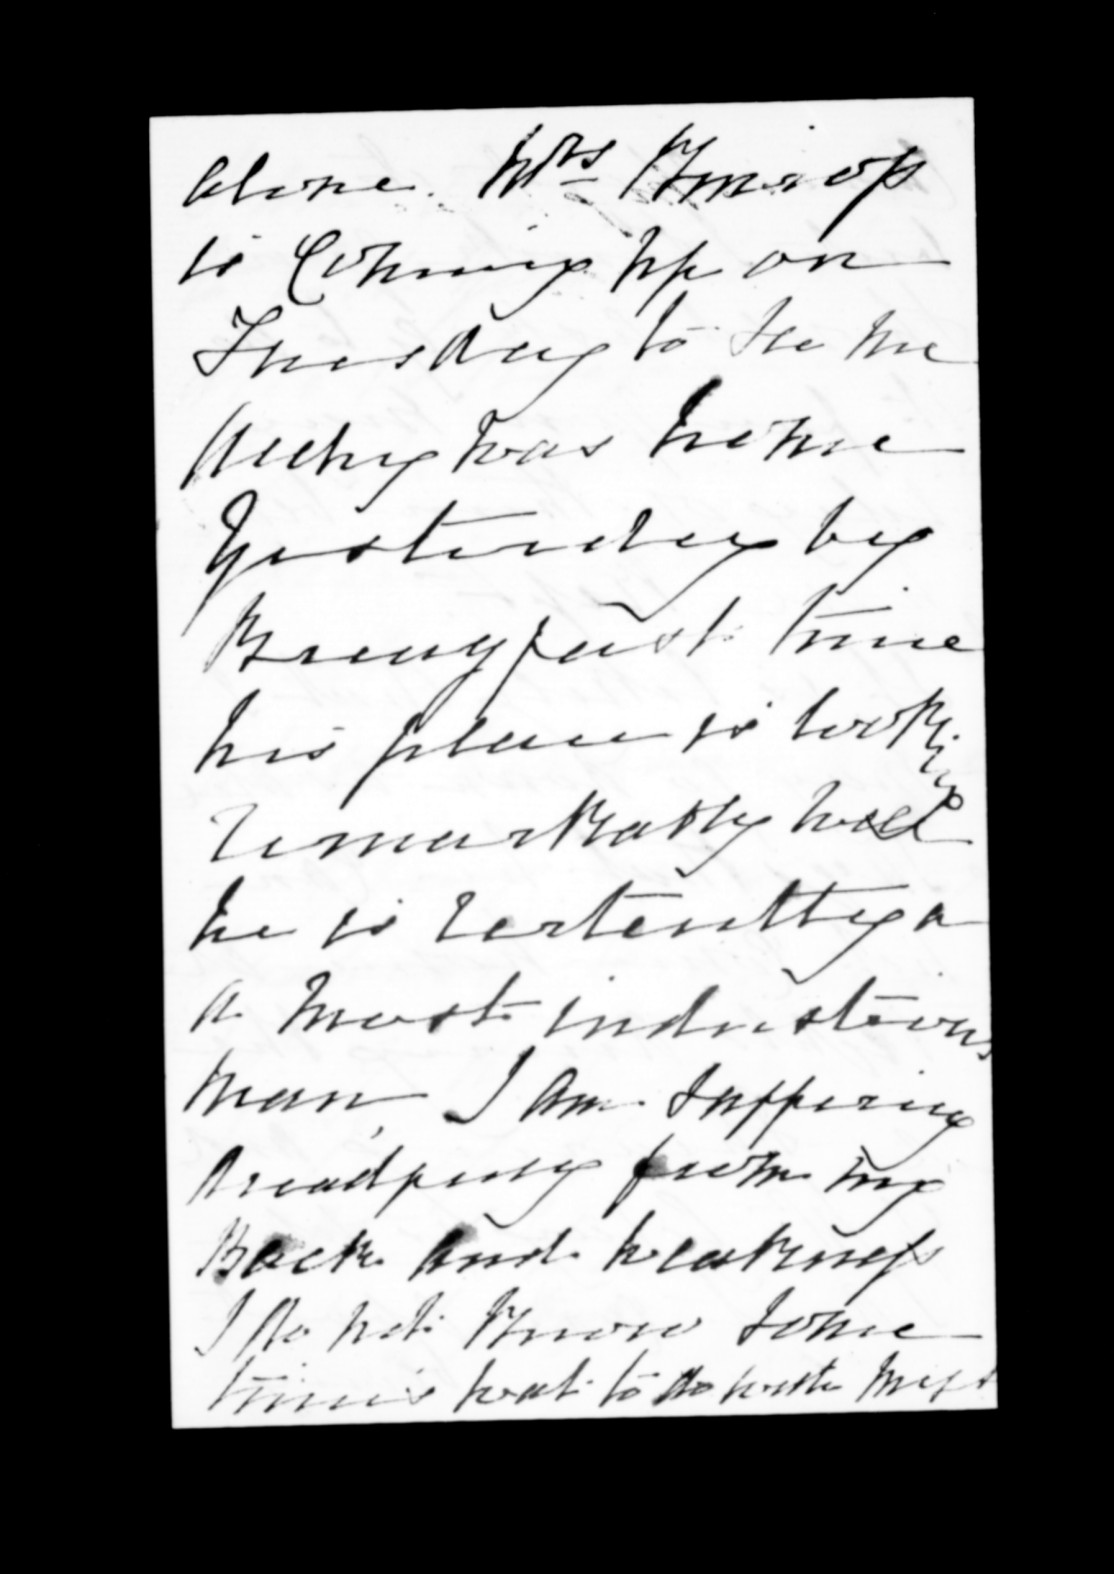 alone. Mrs
is Coming up on
Tuesday to see me
Archy was home
Yesterday by
Breakfast time
his place is looking
remarkably well
he is certently a
a most industrious
man, I am suffering
dreadfully from my
Back and weakness
I do not know some
times wat to do with mys